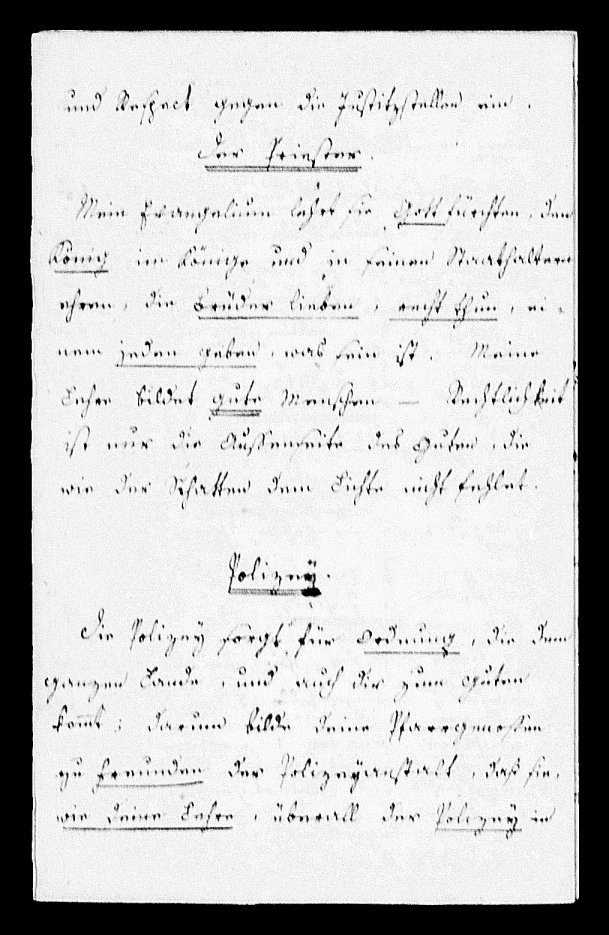 und Respect gegen die Justitzstellen ein.
Der Priester.
Mein Evangelium lehrt sie Gott fürchten, den
König im Könige und in seinen Statthaltern
ehren, die Brüder lieben, recht thun, ei-
nem jeden geben, was sein ist. Meine
Lehre bildet gute Menschen — Rechtlichkeit
ist nur die Aussenseite des Guten, die
wie der Schatten dem Lichte nicht fehlet.
Polizey.
Die Polizey sorgt für Ordnung, die dem
ganzen Lande, und auch dir zum Guten
komt; darum bilde deine Pfarrgenossen
zu Freunden der Polizeyanstalt, daß sie,
wie deine Lehre, überall der Polizey in